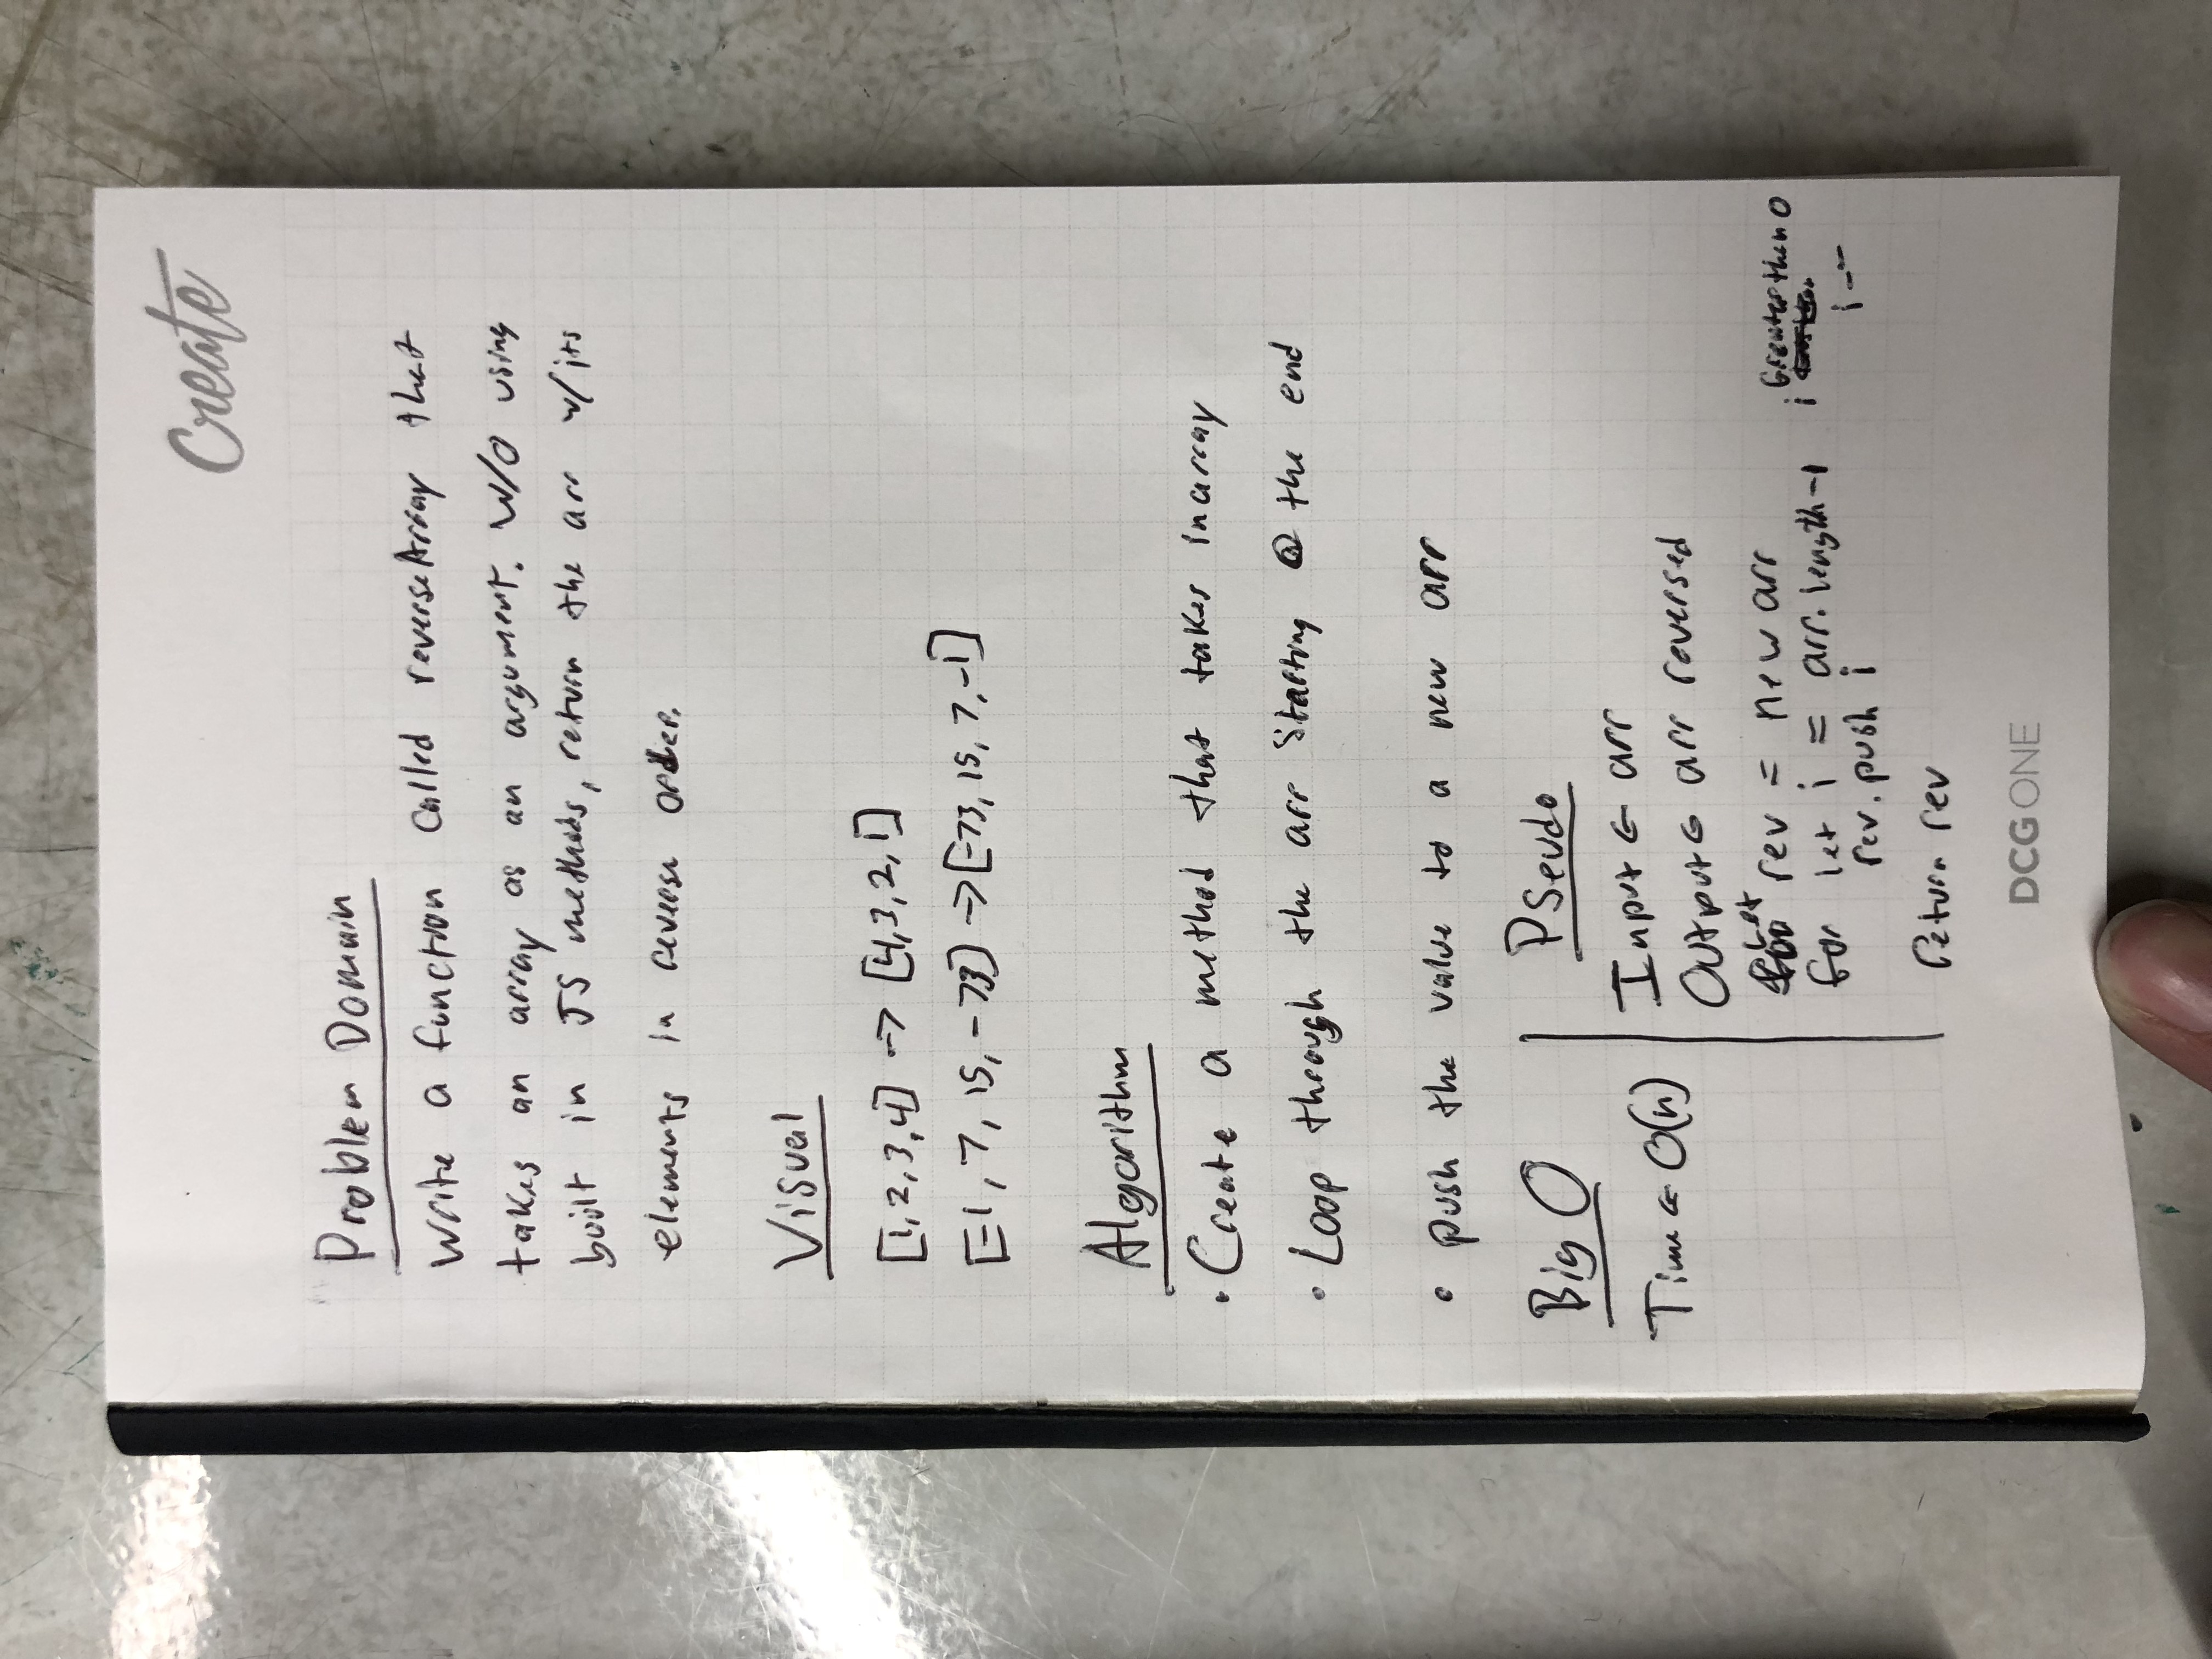 Create
Problem Domain
Write a function called reverseArray that
takes an array as an argument. W/O using
built in JS methods, return the arr w/ its
elements in reverse order.
Visual
[1,2,3,4] -> [4,3,2,1]
[-1, 7, 15, -73] -> [-73, 15, 7, -1]
Algorithm
• Create a method that takes in array
• Loop through the arr Starting @ the end
• push the value to a new arr
Big O
Time ← O(n)
Pseudo
Input ← arr
Output ← arr reversed
Let rev = new arr
for let i = arr.length-1 i Greater then 0
i--
rev.push i
return rev
DCG ONE